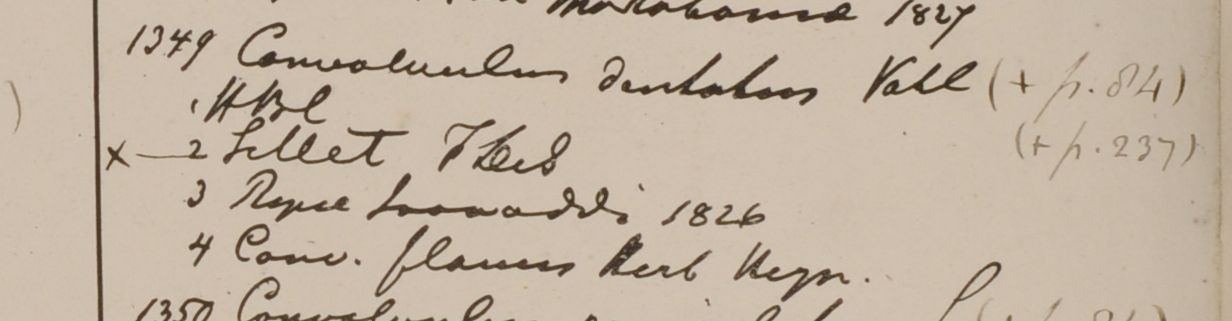 1827
1349 Convolvulus dentatus Vahl (+ p. 84)
1 HBC
x — 2 Sillet (+ p. 237)
3 Ripae Irawaddi 1826
4 Conv. flavus Herb Heyn.
1350 Convolvulus